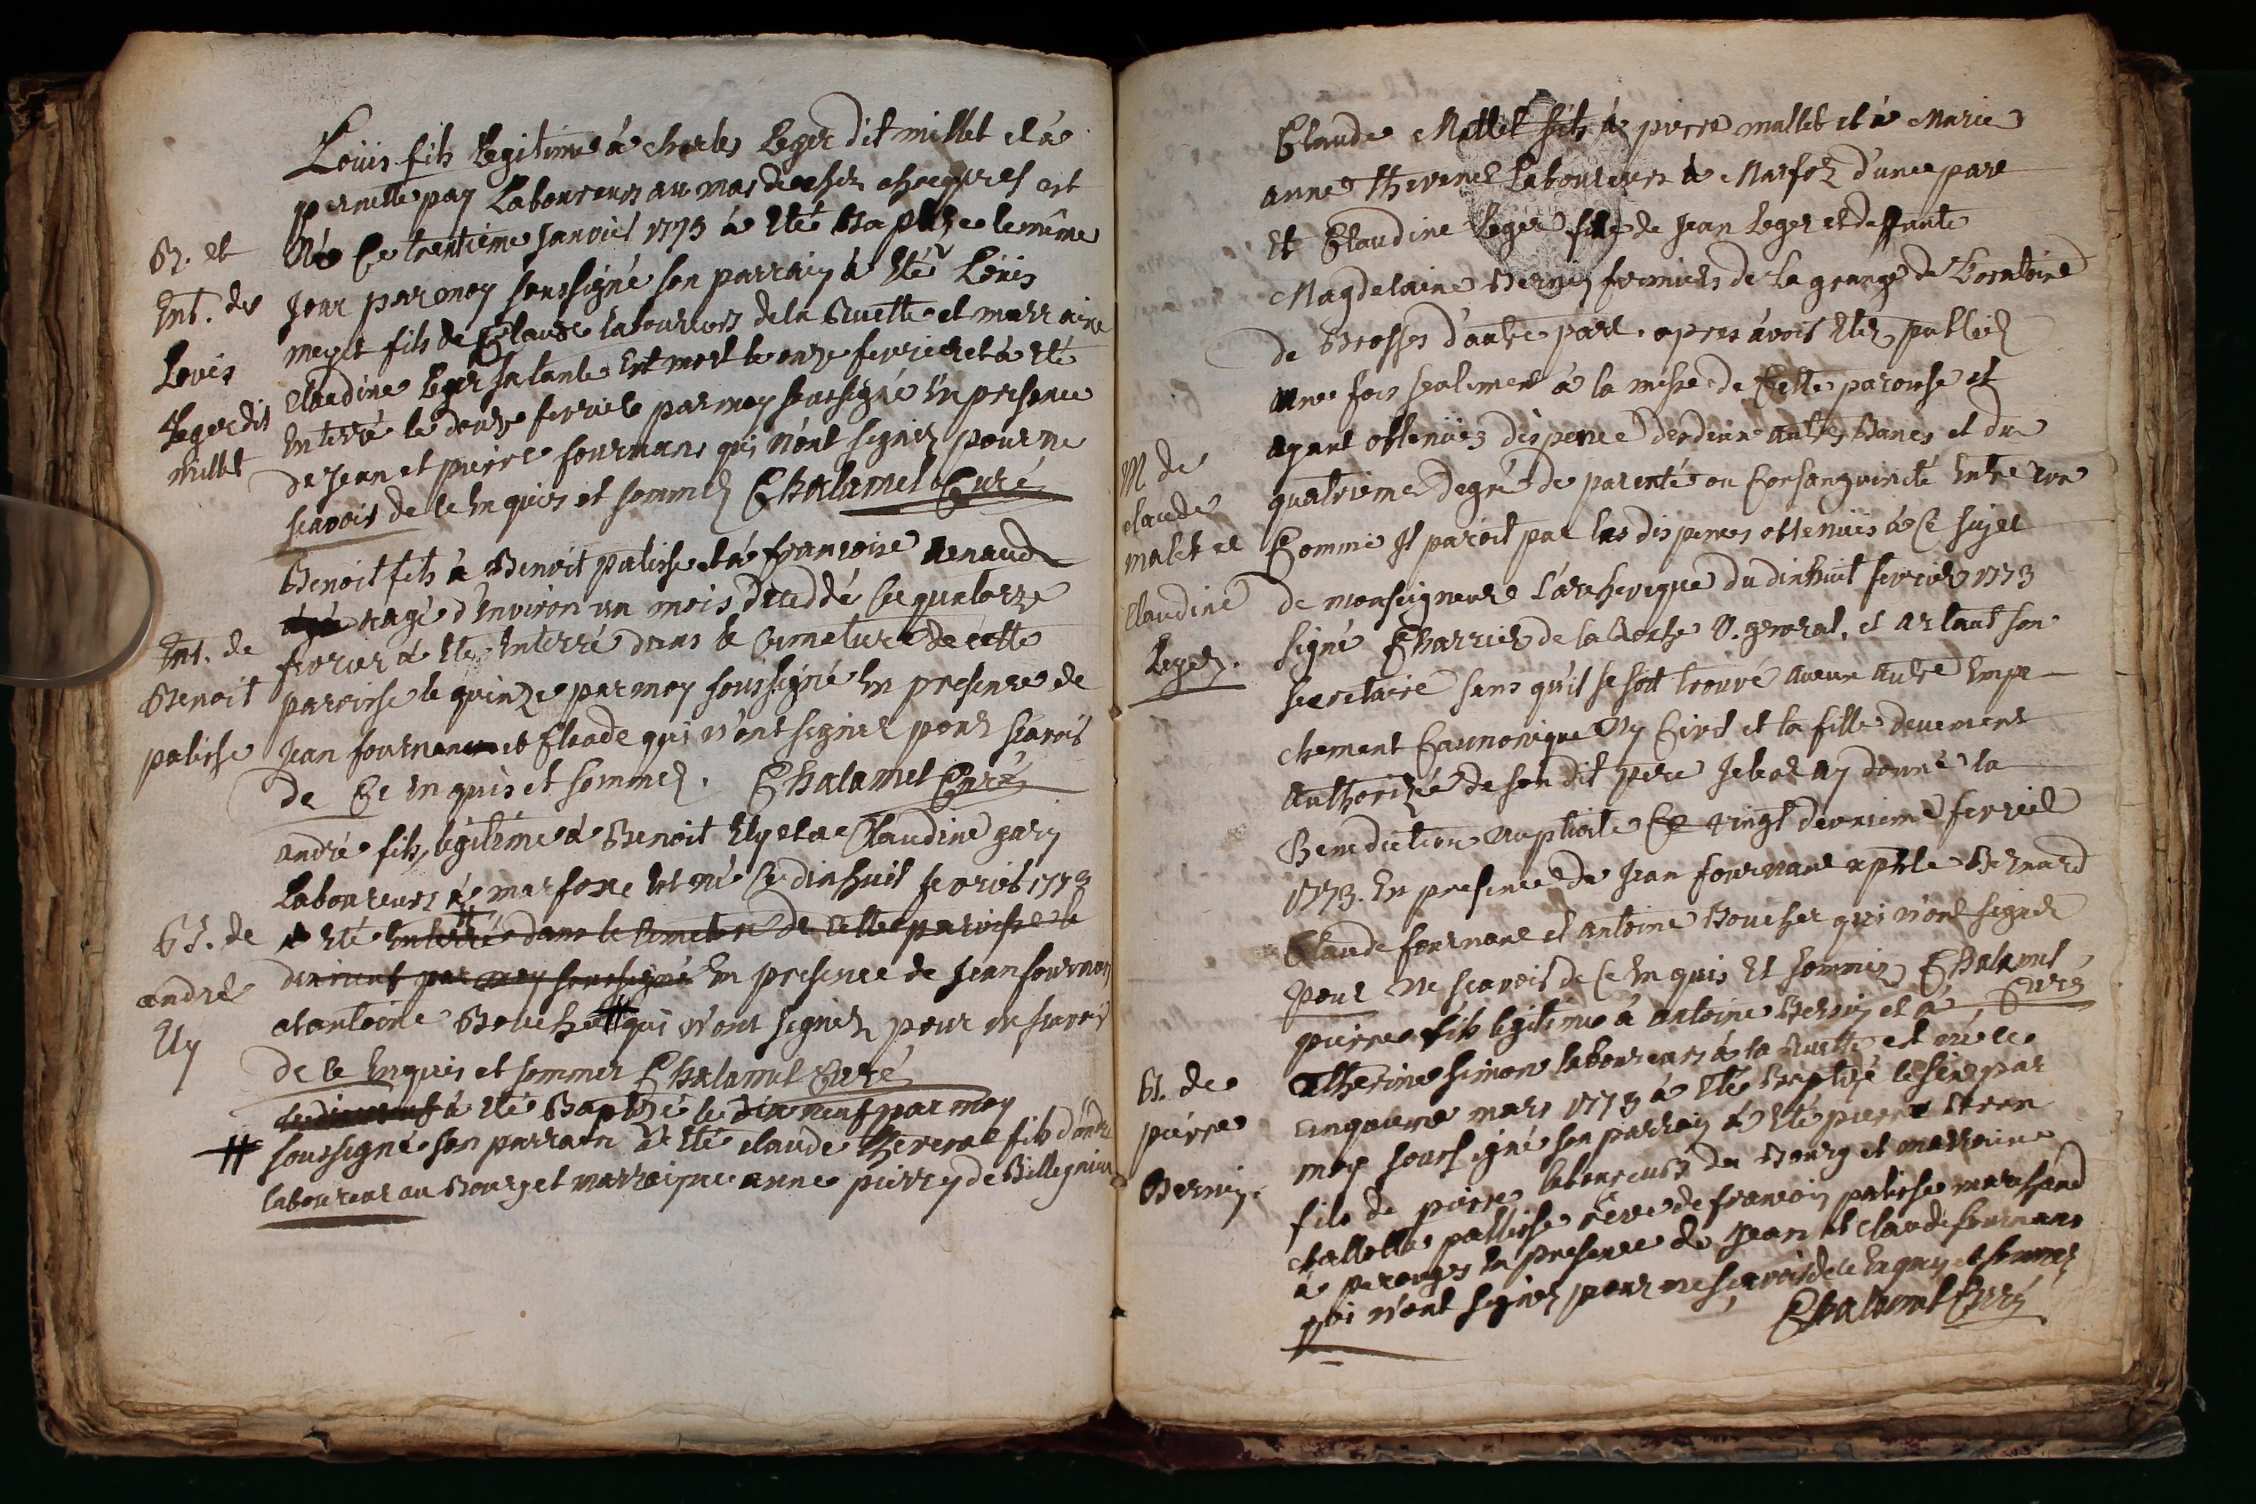 Louis fils legitime à charles Leger dit millet et à
pernette pay Laboureurs au mas est
Né le trentiéme janvier 1773 à eté Baptize le même
jour par moy soussigné son parrain à eté Loüis
fils de Claude laboureurs de la Ruette et marraine
claudine Leger sa tante Est mort le onze fevrier et à eté
Enterré le douze fevrier par moy soussigné En presence
de Jean et pierre fournans qui n'ont signéz pour ne
scavoir de ce En quis et sommez Chalamel Curé
Bz. et
Ent. de
Louis
Leger dit
millet
Benoit fils à Benoit palisse et à françoise Renaud
agé d'Environ un mois decedé le quatorze
fevrier à eté Enterré dans le Cimetiere de cette
paroisse le quinze par moy soussigné En presence de
Jean fournan et Claude qui n'ont signer pour scavoir
de Ce En quis et sommez. Chalamel Curé
Ent. de
Benoit
palisse
andré fils legitime à Benoit Ely et à Claudine gary
Laboureurs à marfoxe Est né le dixhuit fevrier 1773
à eté Enterré dans le Cimetiere de cette paroisse le
dixneuf par moy soussigné En presence de Jean fournan
et antoine Boucher # qui n'ont signer pour ne scavoir
de ce Enquis et sommer Chalamel Curé
à eté Baptizé le dix neuf par moy
# soussigné son parrain à eté claude thevenet fils d'andré
laboureur au Bourg et marraine anne pierry de Billegnieux
Bt. de
andre
Ely
Claude Mallet fils à pierre mallet et à Marie
anne thevenet Laboureurs à Marfoz d'une part
Et Claudine Leger fille de Jean Leger et deffante
Magdelaine Bernin fermiers de la grange de L'oratoire
de Brosses d'autre part. apres avoir Etez publiez
une fois seulement à la messe de Cette paroisse et
ayant obtenües dispence des deux autres Bancs et du
quatrieme degré de parenté ou Consanguinité Entre eux
Comme Il paroit par les dispences obtenües à Ce sujet
de monseigneur L'archeveque du dixhuit fevrier 1773
signé Charrier de la Roche V. general, et son
secretaire sans qu'il se soit trouvé aucun autre Empe
chement Cannonique Ny Civil et la fille deuement
authorizée de son dit pere Je leur ay donné la
Benediction nuptiale Ce vingt deuxieme fevrier
1773. En presence de Jean fournant Bernard
Claude fournant et antoine Boucher qui n'ont signer
pour ne scavoir de Ce En quis Et sommez Chalamel
Curé
M de
claude
malet et
Claudine
Leger.
pierre fils legitime à antoine Bernin et à
Catherine simon laboureurs à la Ruette est né le
cinquieme mars 1773 à eté Baptizé le six par
moy soussigné son parrain à eté pierre
fils de pierre laboureurs du Bourg et marraine
palisse de francois palisse marchand
à perouges En presence de Jean et claude fournans
qui n'ont signez pour ne scavoir de ce Enquis et sommez
Chalamel Curé
Bt. de
pierre
Bernin.